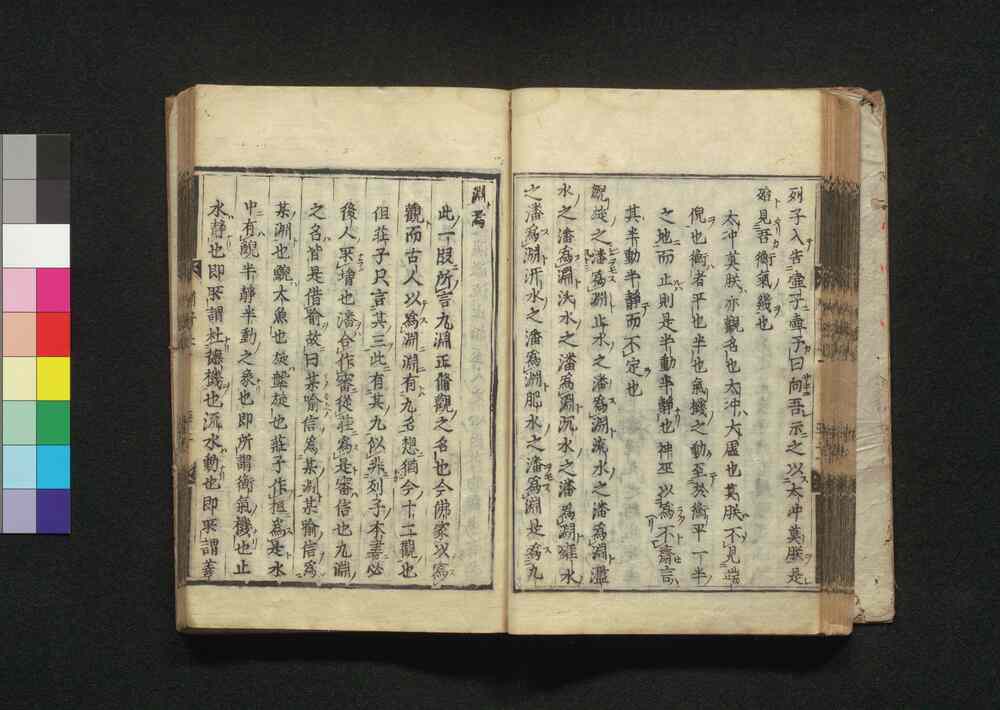 列子入告壷子壷子曰向吾示之以太冲莫朕是
殆見吾衡氣幾也
太冲莫朕亦觀名也太冲大虚也莫朕不見端
倪也衡者平也半也氣機之動至於衡平一半
之地而止則是半動半靜也神巫以為不齋言
其半動半靜而不定也
鯢旋之潘為淵止水之潘為淵流水之潘為淵濫
水之潘為淵沃水之潘為淵沉水之潘為淵雍水
之潘為淵汧水之潘為淵肥水之潘為淵是為九
淵焉
此一段所言九淵正脩觀之名也今佛家以為
觀而古人以為淵淵有九名想猶今十二觀也
但莊子只言其三此有其九似非列子本書必
後人所增也潘合作審從莊為是審信也九淵
之名皆是借喻故曰某喻信為某淵某喻信為
某淵也鯢大魚也旋盤旋也莊子作桓為是水
中有鯢半靜半動之象也即所謂衡氣機也止
水靜也即所謂杜德機也流水動也即所謂善